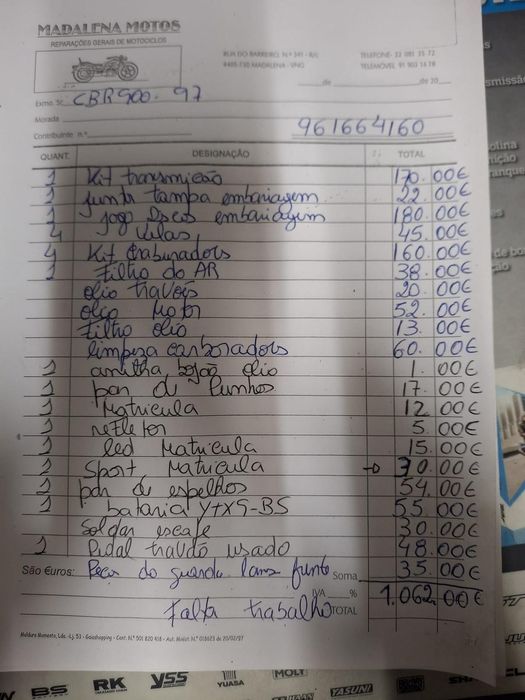 MADALENA MOTOS
REPARAÇÕES GERAIS DE MOTOCICLOS
RUA DO BARREIRO, N.º 541 - R/C
4405-730 MADALENA - VNG
TELEFONE- 22 081 35 72
TELEMÓVEL 91 903 14 78
de de 20
Exmo. Sr. CBR900. 97
Morada
Contribuinte n.º 961664160
QUANT. DESIGNAÇÃO TOTAL
1 Kit transmissão 170.00€
1 junta tampa embariagem 22.00€
1 jogo Discos embariagim 180.00€
4 Velas 45.00€
4 Kit Carburadors 160.00€
1 Filtro do AR 38.00€
olio travões 20.00€
olio Motor 52.00€
Filtro olio 13.00€
limpeza carboradors 60.00€
1 anilha bojão olio 1.00€
1 par di Punhos 17.00€
1 Matricula 12.00€
1 refletor 5.00€
1 led Matricula 15.00€
1 Sport Matricula 30.00€
1 par di espelhos 54.00€
1 bataria YTX9-BS 55.00€
Soldar escape 30.00€
1 Pidal travão usado 48.00€
São Euros: Peça do guarda lama frente Soma 35.00€
IVA % 1.062.00€
Falta trabalho TOTAL
BS
RK
YSS
YUASA
MOLT
YASUNI